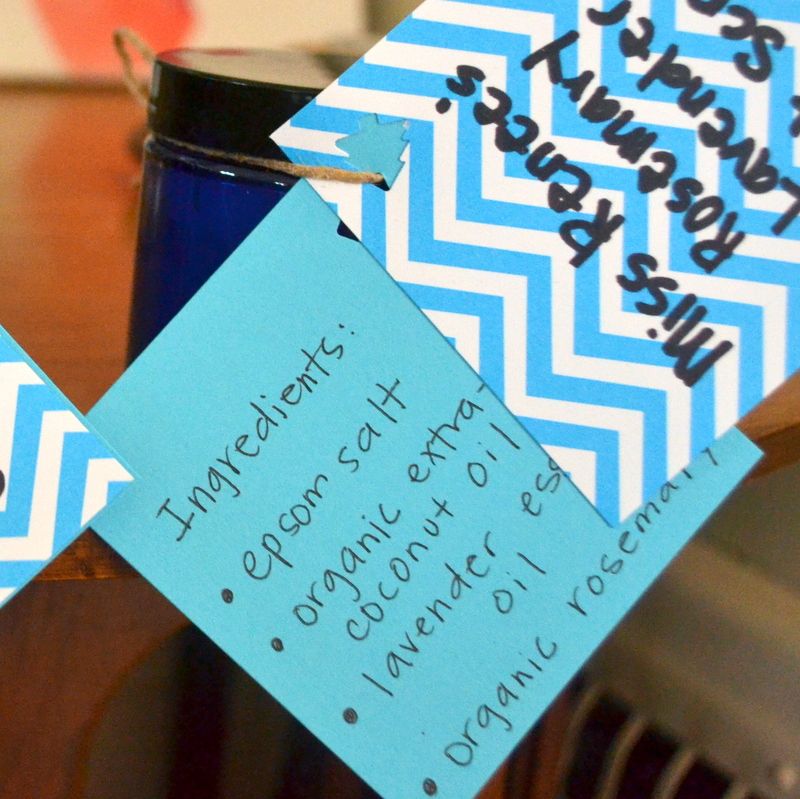 Miss Renees'
Rosemary
Lavender
Ingredients:
• epsom salt
• organic extra-
coconut oil
• lavender ess
oil
• organic rosemary